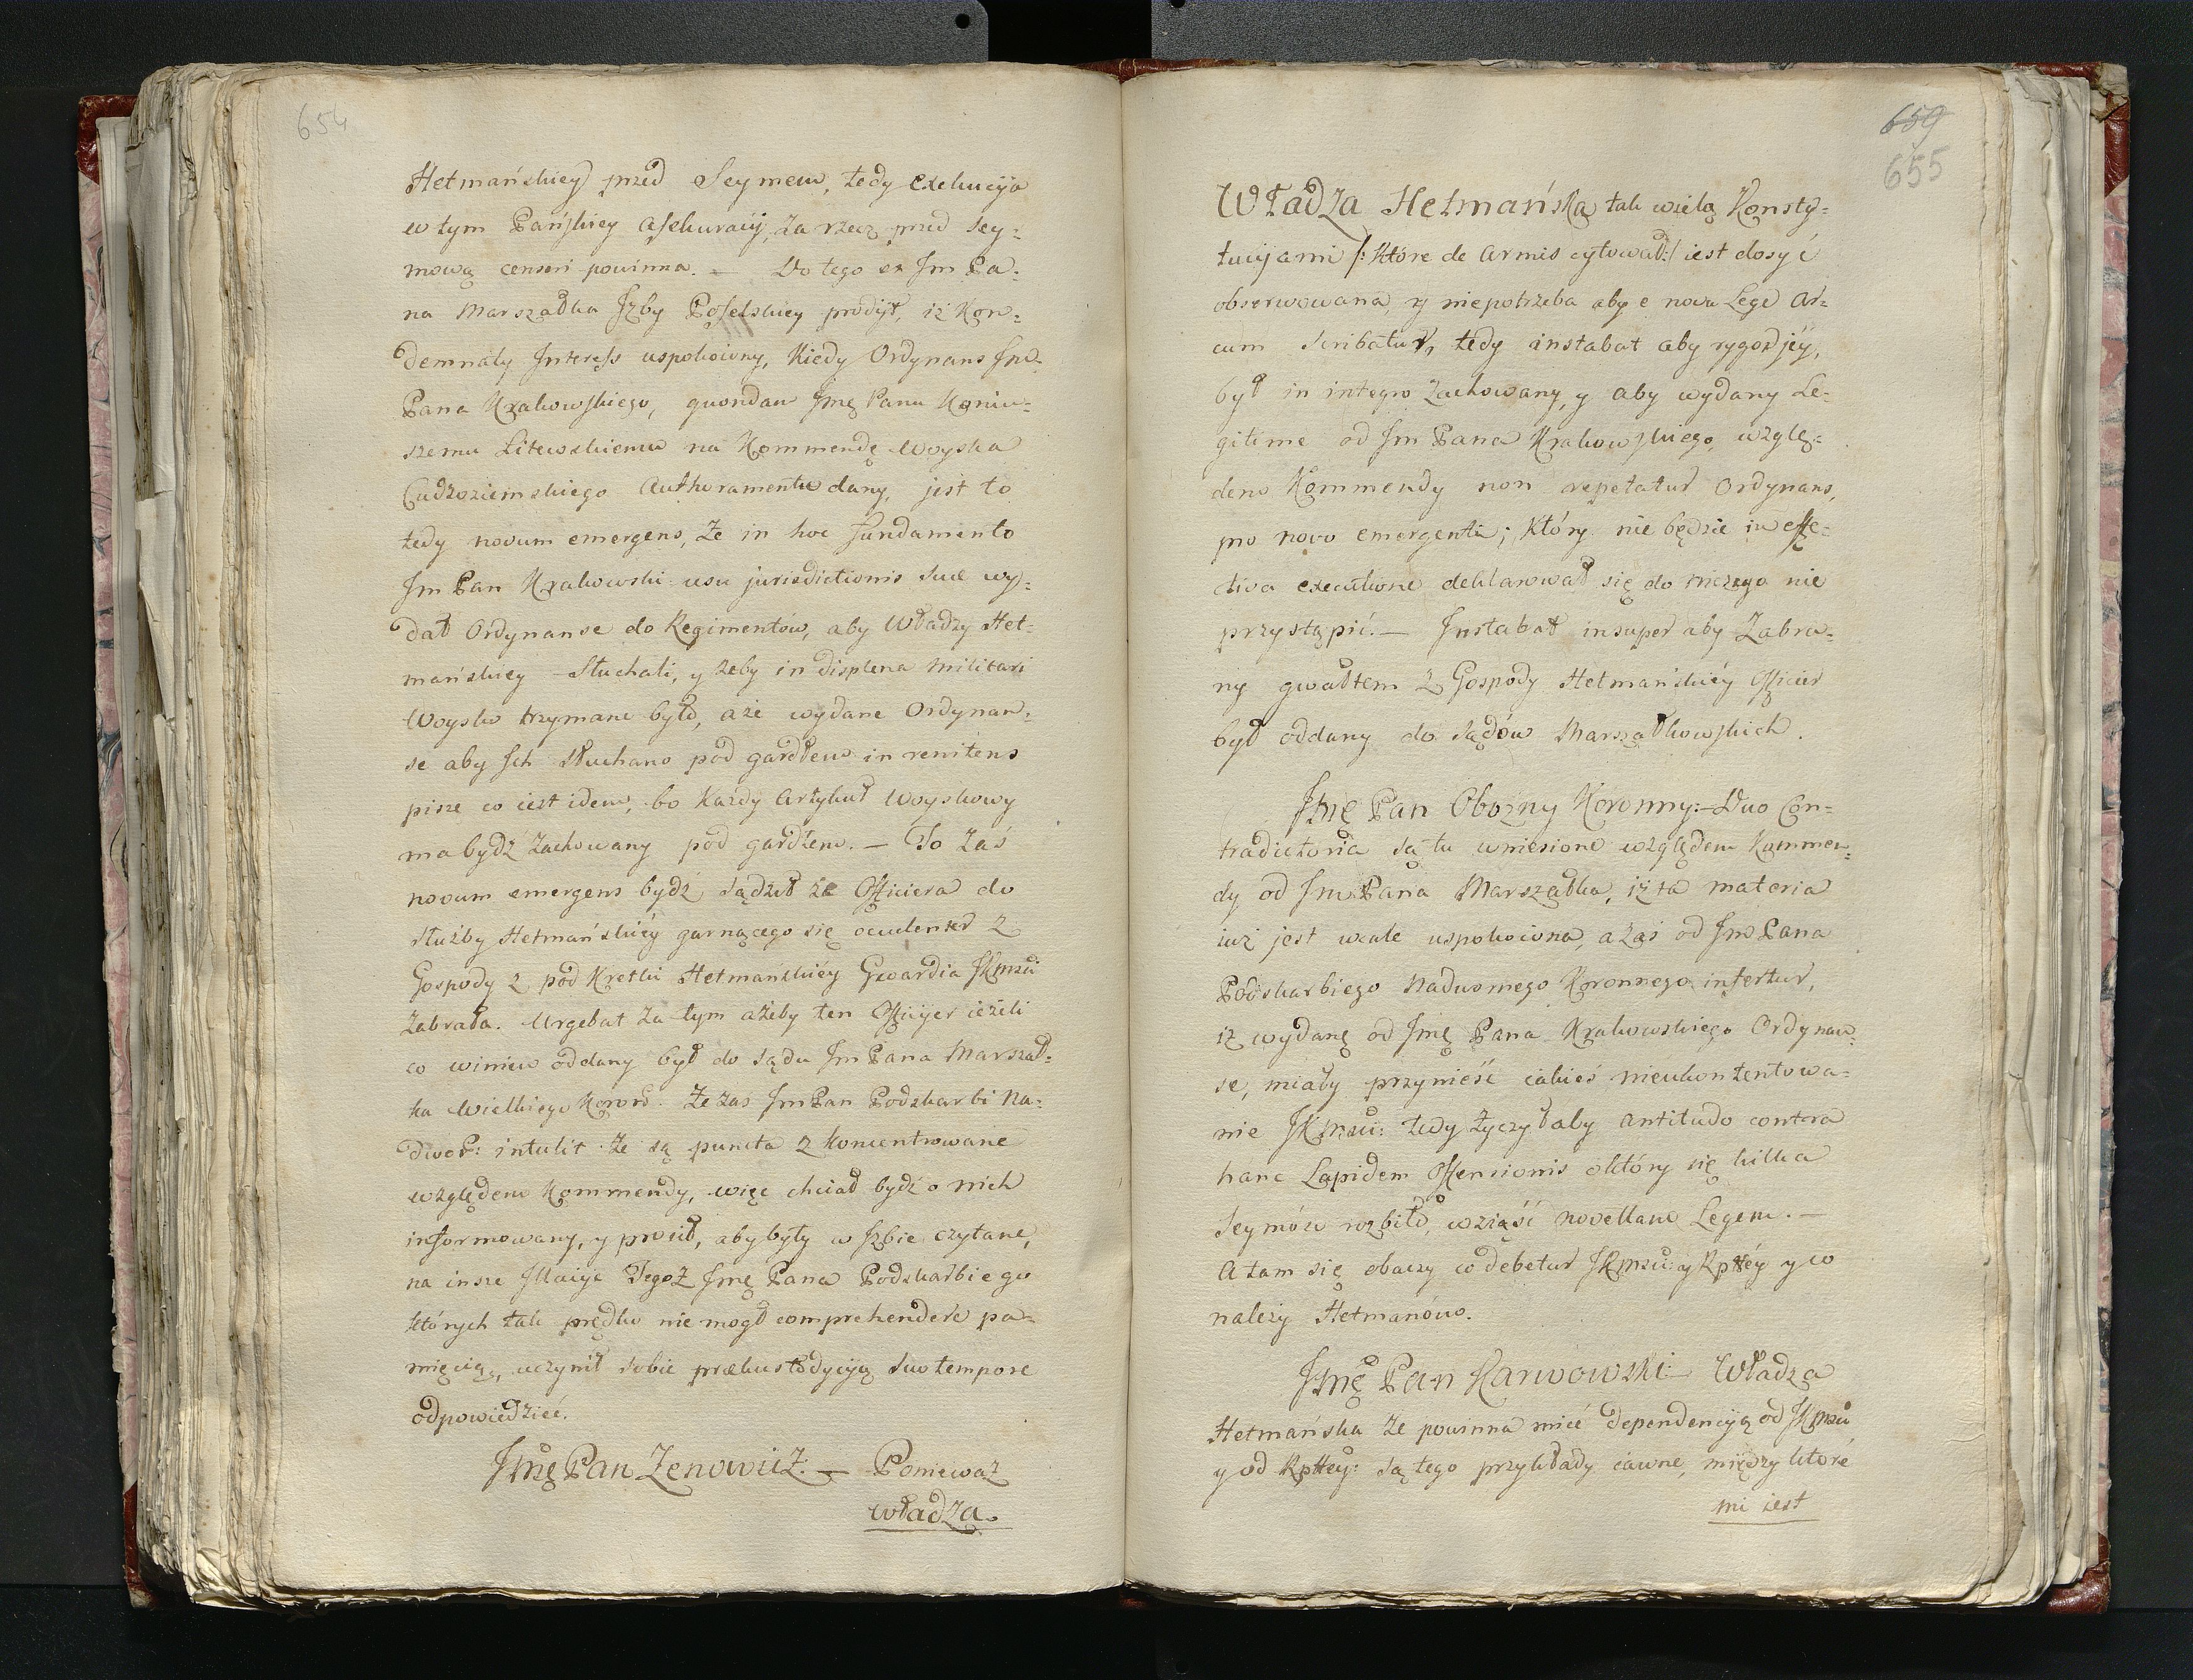 654
Hetmańskiey przed Seymem, tedy exekucyja
w tym Pańskiey asekuracij, za rzecz przed sey=
mową censeri powinna. — Do tego ex Jm Pa=
na Marszałka Jzby Poselskiey prodijt, iż Kon=
demnaty Interess uspokoiony, kiedy Ordynans Jmć
Pana Krakowskiego, quondam Jmę Panu Koniu=
szemu Litewskiemu na Kommendę Woyska
Cudzoziemskiego Authoramentu dany, jest to
tedy novum emergens, że in hoc fundamento
Jm Pan Krakowski usu jurisdictionis suæ wy=
dał Ordynanse do Regimentów, aby Władzy Het=
mańskiey słuchali, y żeby in displena militari
Woysko trzymane było, a że wydane Ordynan=
se aby Jch słuchano pod gardłem in renitens
pisze co iest idem, bo każdy artykuł Woyskowy
ma bydź zachowany pod gardłem. — To zaś
novum emergens bydź sądził że Officiera do
służby Hetmańskiéy garnącego się oculenter z
Gospody z pod Kretki Hetmańskiéy Gwardia JKmści
zabrała. Urgebat za tym ażeby ten Officyer ieżeli
co winien oddany był do sądu Jm Pana Marszał=
ka Wielkiego Koron. Że zas Jm Pan Podskarbi Na=
dwor: intulit że są puncta zkoncentrowane
względem Kommendy, więc chciał bydź o nich
informowany, y prosił, aby były w Jzbie czytane,
na insze Jllacije Tegoż Jmę Pana Podskarbiego
których tak prędko nie mogł comprehendere pa=
mięcią, uczynił sobie prækustodycyją suo tempore
odpowiedzieć.
Jmę Pan Zenowicz. — Ponieważ
władza.
659
655
Władza Hetmańska tak wielą Konsty=
tucyjami /: które de armis cytował :/ iest dosyć
obserwowana, y niepotrzeba aby e nova Lege ar=
cum scribatur, tedy instabat aby rygor jéy,
był in integro zachowany, y aby wydany Le=
gitime od Jm Pana Krakowskiego, wzglę=
dem Kommendy non repetatur Ordynans,
pro novo emergenti; który nie będzie in effe=
ctiva executione deklarował się do niczego nie
przystąpić. — Instabat insuper aby zabra=
ny gwałtem z Gospody Hetmańskiéy Officier
był oddany do sądów Marszałkowskich.
Jmę Pan Obożny Koronny: — Duo Con=
tradictoria są tu wniesione względem Kommen=
dy od Jm Pana Marszałka, iż ta materia
iuż jest wcale uspokoiona, a zaś od Jm Pana
Podskarbiego Nadwornego Koronnego infertur,
iż wydanę od Jmę Pana Krakowskiego Ordynan=
se, miały przynieść iakieś nieukontentowa=
nie JKmści: tedy życzył aby antitudo contra
hanc Lapidem Offensionis o który się kilka
Seymów rozbiło, wziąść novellam Legem. —
A tam się obaczy co debetur JKmści: y Rpttéy y co
należy Hetmanóm.
Jmę Pan Karwowski — Władza
Hetmańska że powinna mieć dependencyją od JKmści
y od Rpttey: są tego przykłady iawne, między któré
mi iest